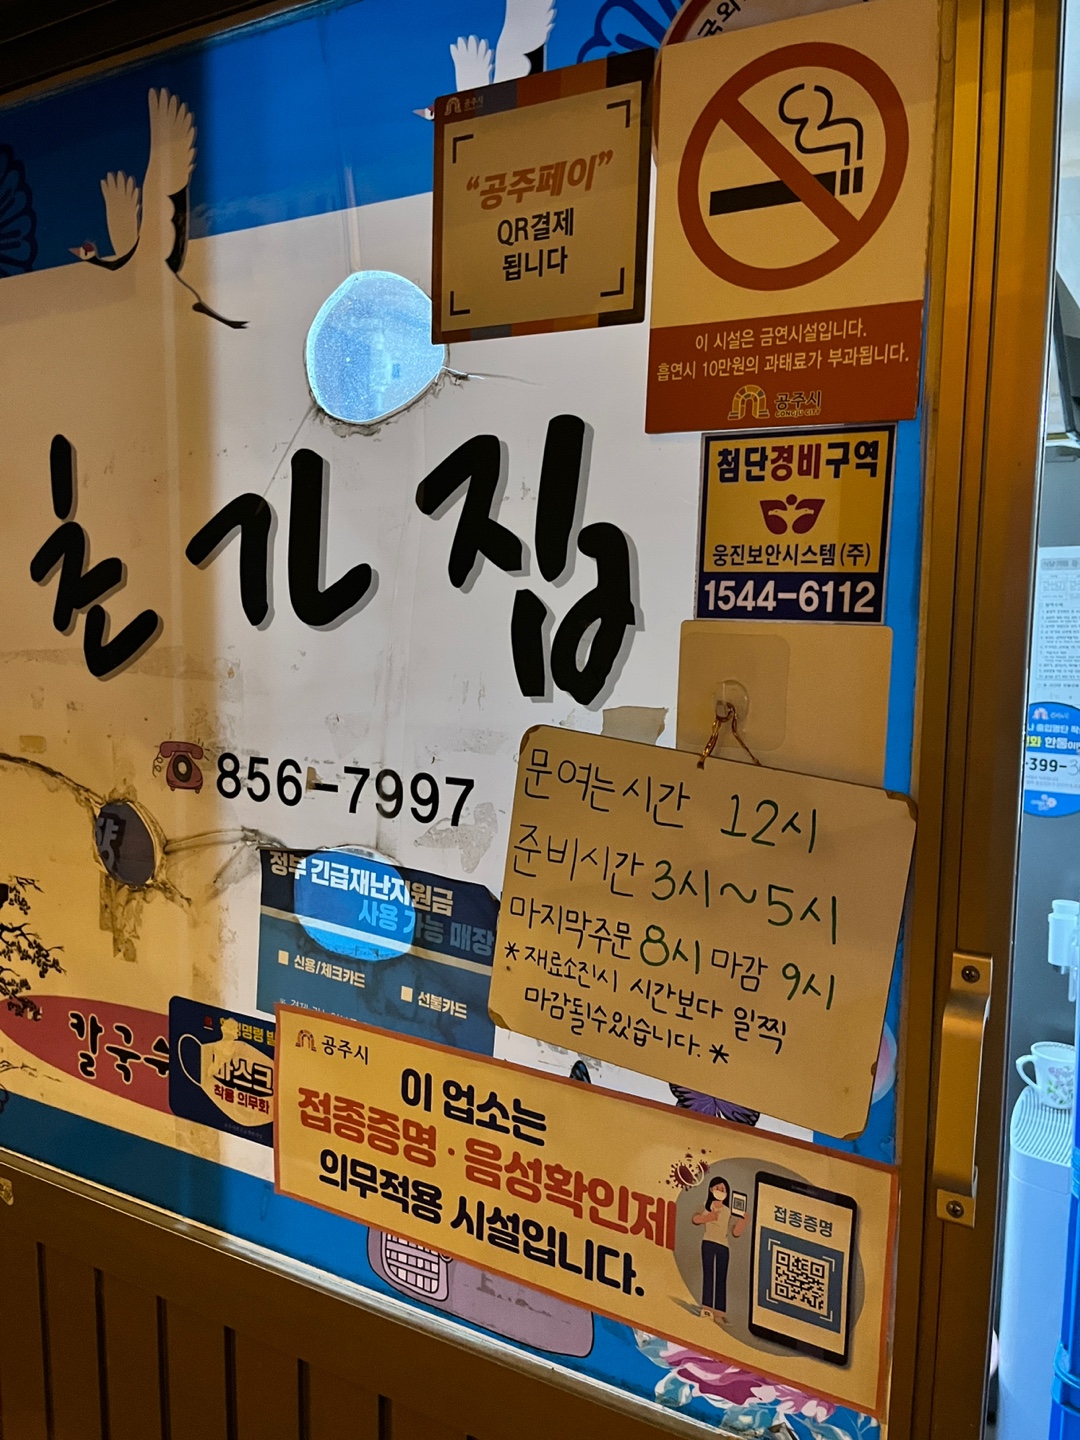 공주시
“공주페이”
QR결제
됩니다
이 시설은 금연시설입니다.
흡연시 10만원의 과태료가 부과됩니다.
공주시
GONGJU CITY
첨단경비구역
웅진보안시스템(주)
1544-6112
촌가집
856-7997
문여는시간 12시
준비시간 3시~5시
마지막주문 8시 마감 9시
*재료소진시 시간보다 일찍
마감될수있습니다.*
정부 긴급재난지원금
사용 가능 매장
신용/체크카드
선불카드
칼국수
마스크
착용 의무화
공주시
이 업소는
접종증명·음성확인제
의무적용 시설입니다.
접종증명
-399-